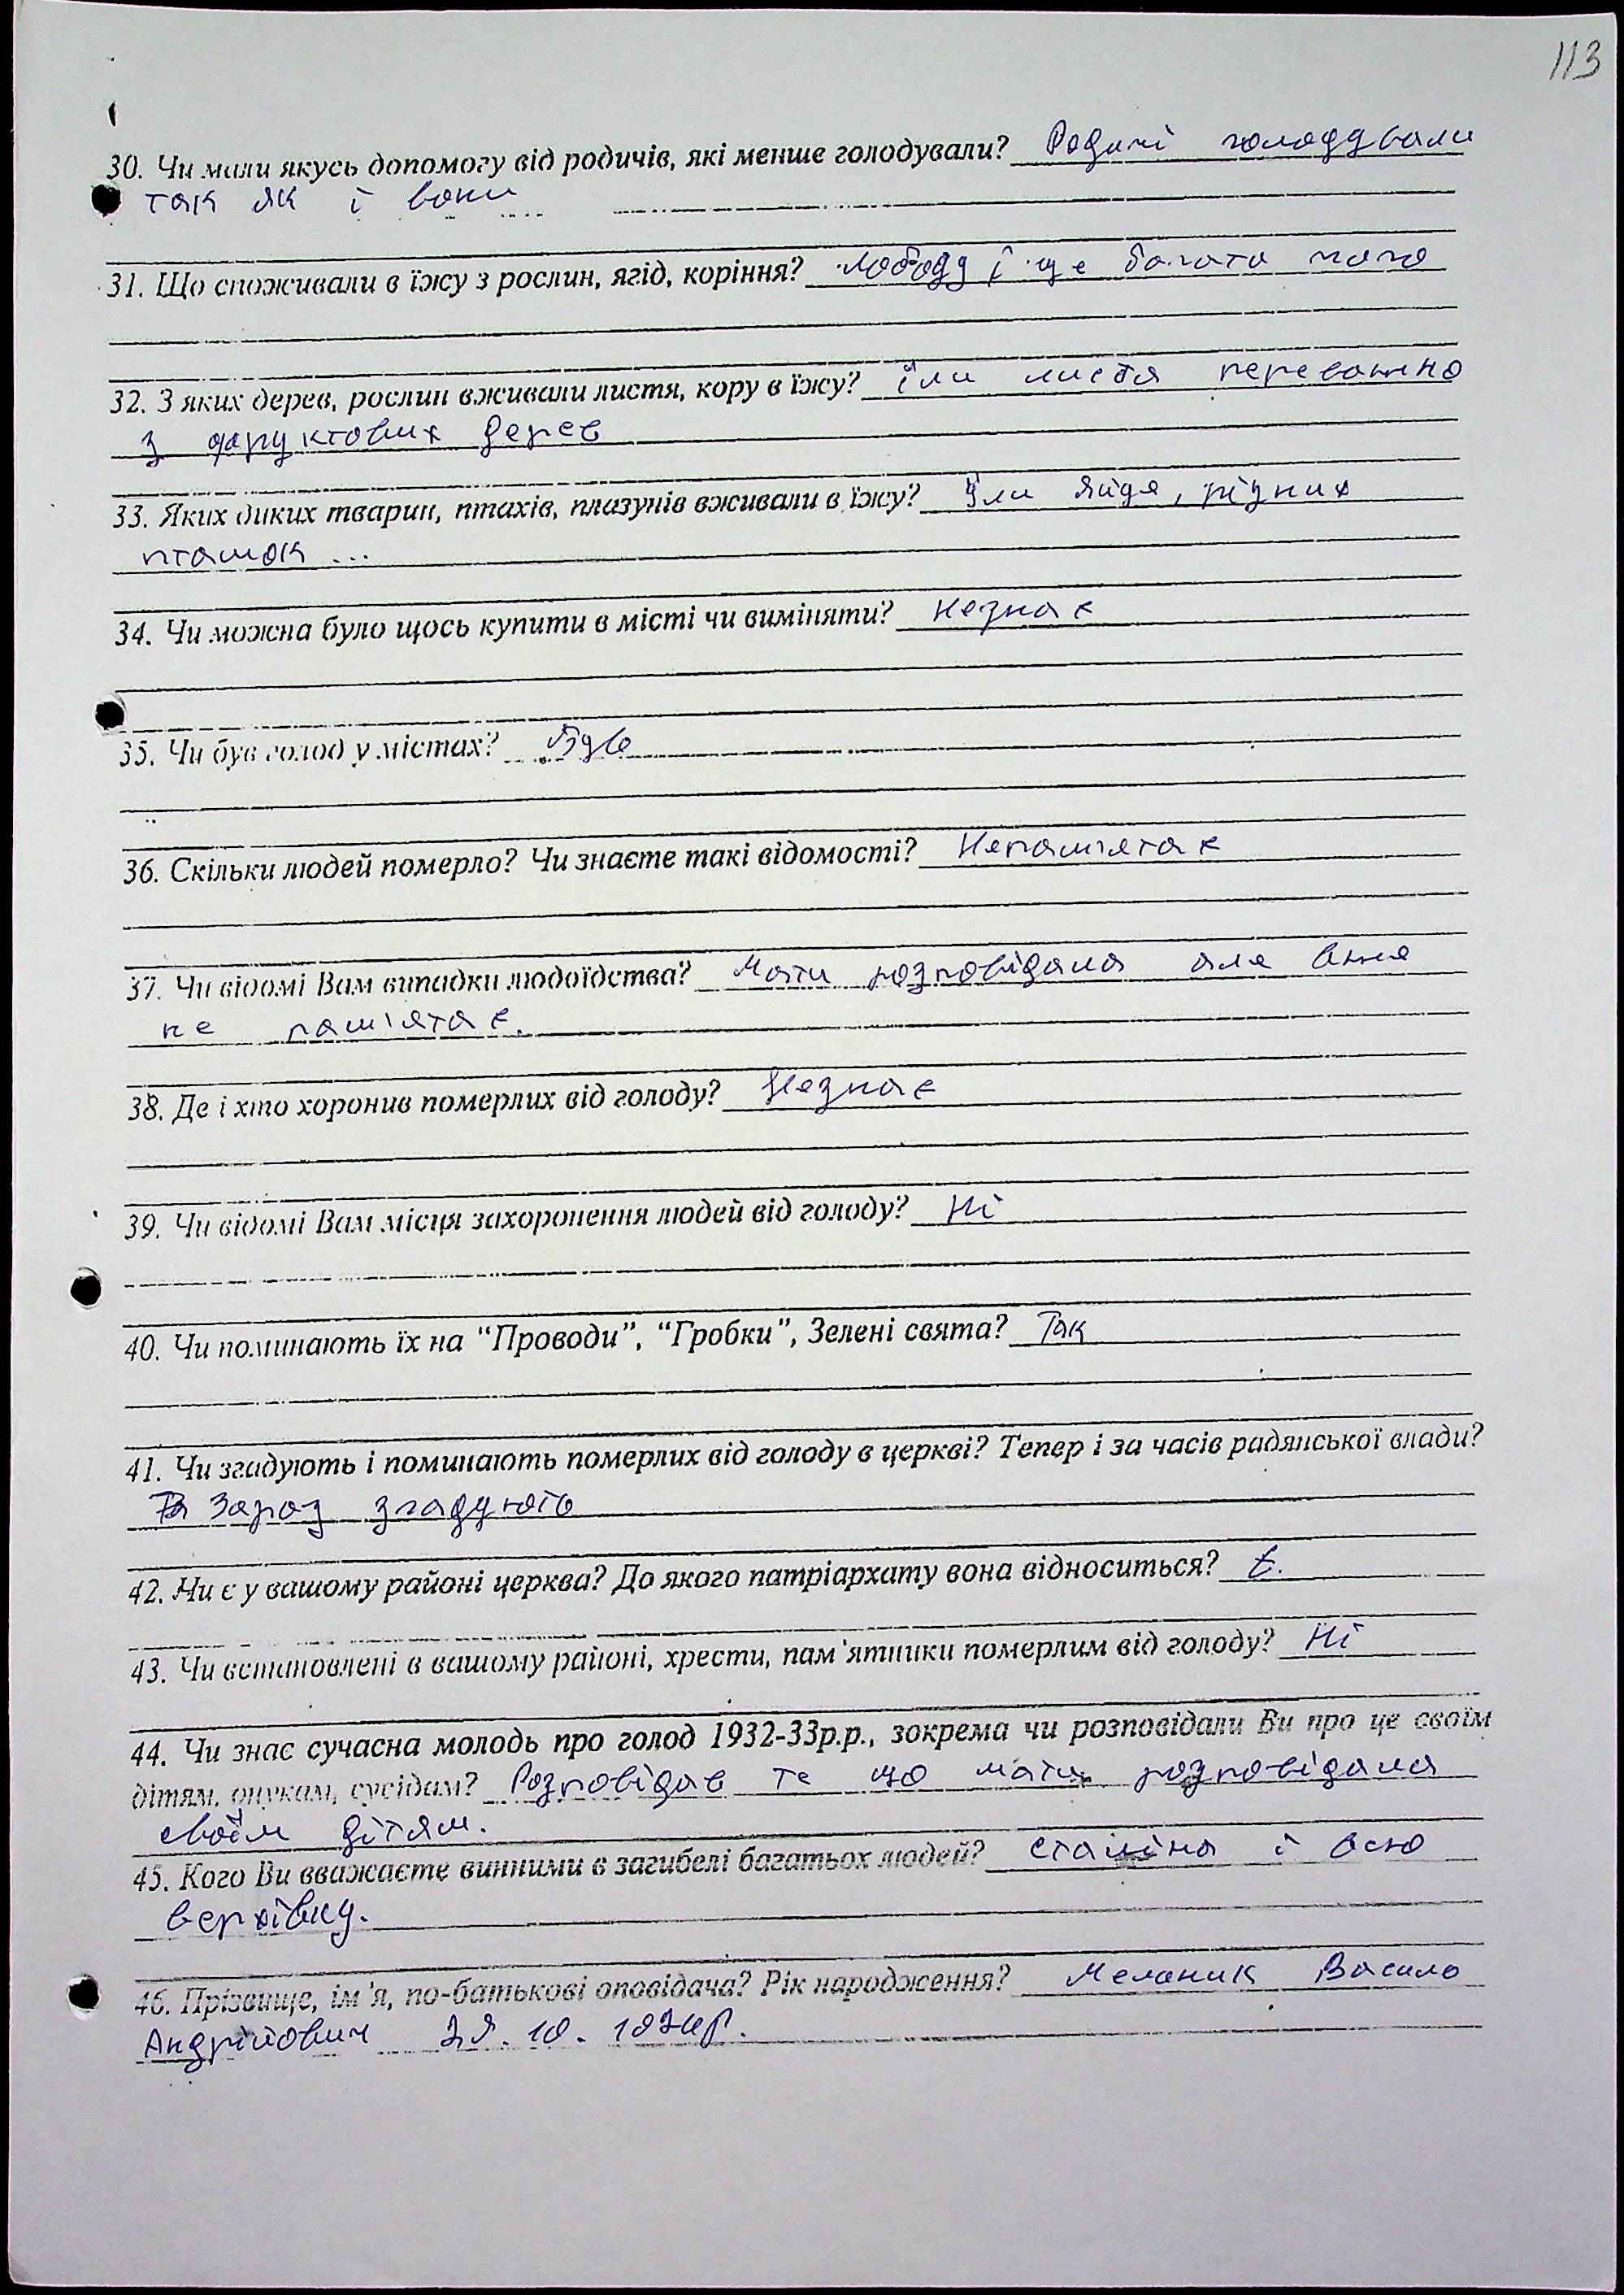 113
30. Чи мали якусь допомогу від родичів, які менше голодували? Родичі голодували
так як і вони
31. Що споживали в їжу з рослин, ягід, коріння? Лободу і ще багато чого
32. З яких дерев, рослин вживали листя, кору в їжу? їли листя переважно
з фруктових дерев
33. Яких диких тварин, птахів, плазунів вживали в їжу? Їли яйця, різних
пташок ...
34. Чи можна було щось купити в місті чи виміняти? Незнає
35. Чи був голод у містах? був
36. Скільки людей померло? Чи знаєте такі відомості? Непам'ятає
37. Чи відомі Вам випадки людоїдства? Мати розповідала але
не пам'ятає.
38. Де і хто хоронив померлих від голоду? Незнає
39. Чи відомі Вам місця захоронення людей від голоду? Ні
40. Чи поминають їх на “Проводи”, “Гробки”, Зелені свята? Так
41. Чи згадують і поминають померлих від голоду в церкві? Тепер і за часів радянської влади?
Зараз згадують
42. Чи є у вашому районі церква? До якого патріархату вона відноситься? Є.
43. Чи встановлені в вашому районі, хрести, пам'ятники померлим від голоду? Ні
44. Чи знає сучасна молодь про голод 1932-33р.р., зокрема чи розповідали Ви про це своїм
дітям, онукам, сусідам? Розповідав те що мати розповідала
своїм дітям.
45. Кого Ви вважаєте винними в загибелі багатьох людей? Сталіна і всю
верхівку.
46. Прізвище, ім'я, по-батькові оповідача? Рік народження? Меланик Василь
Андрійович